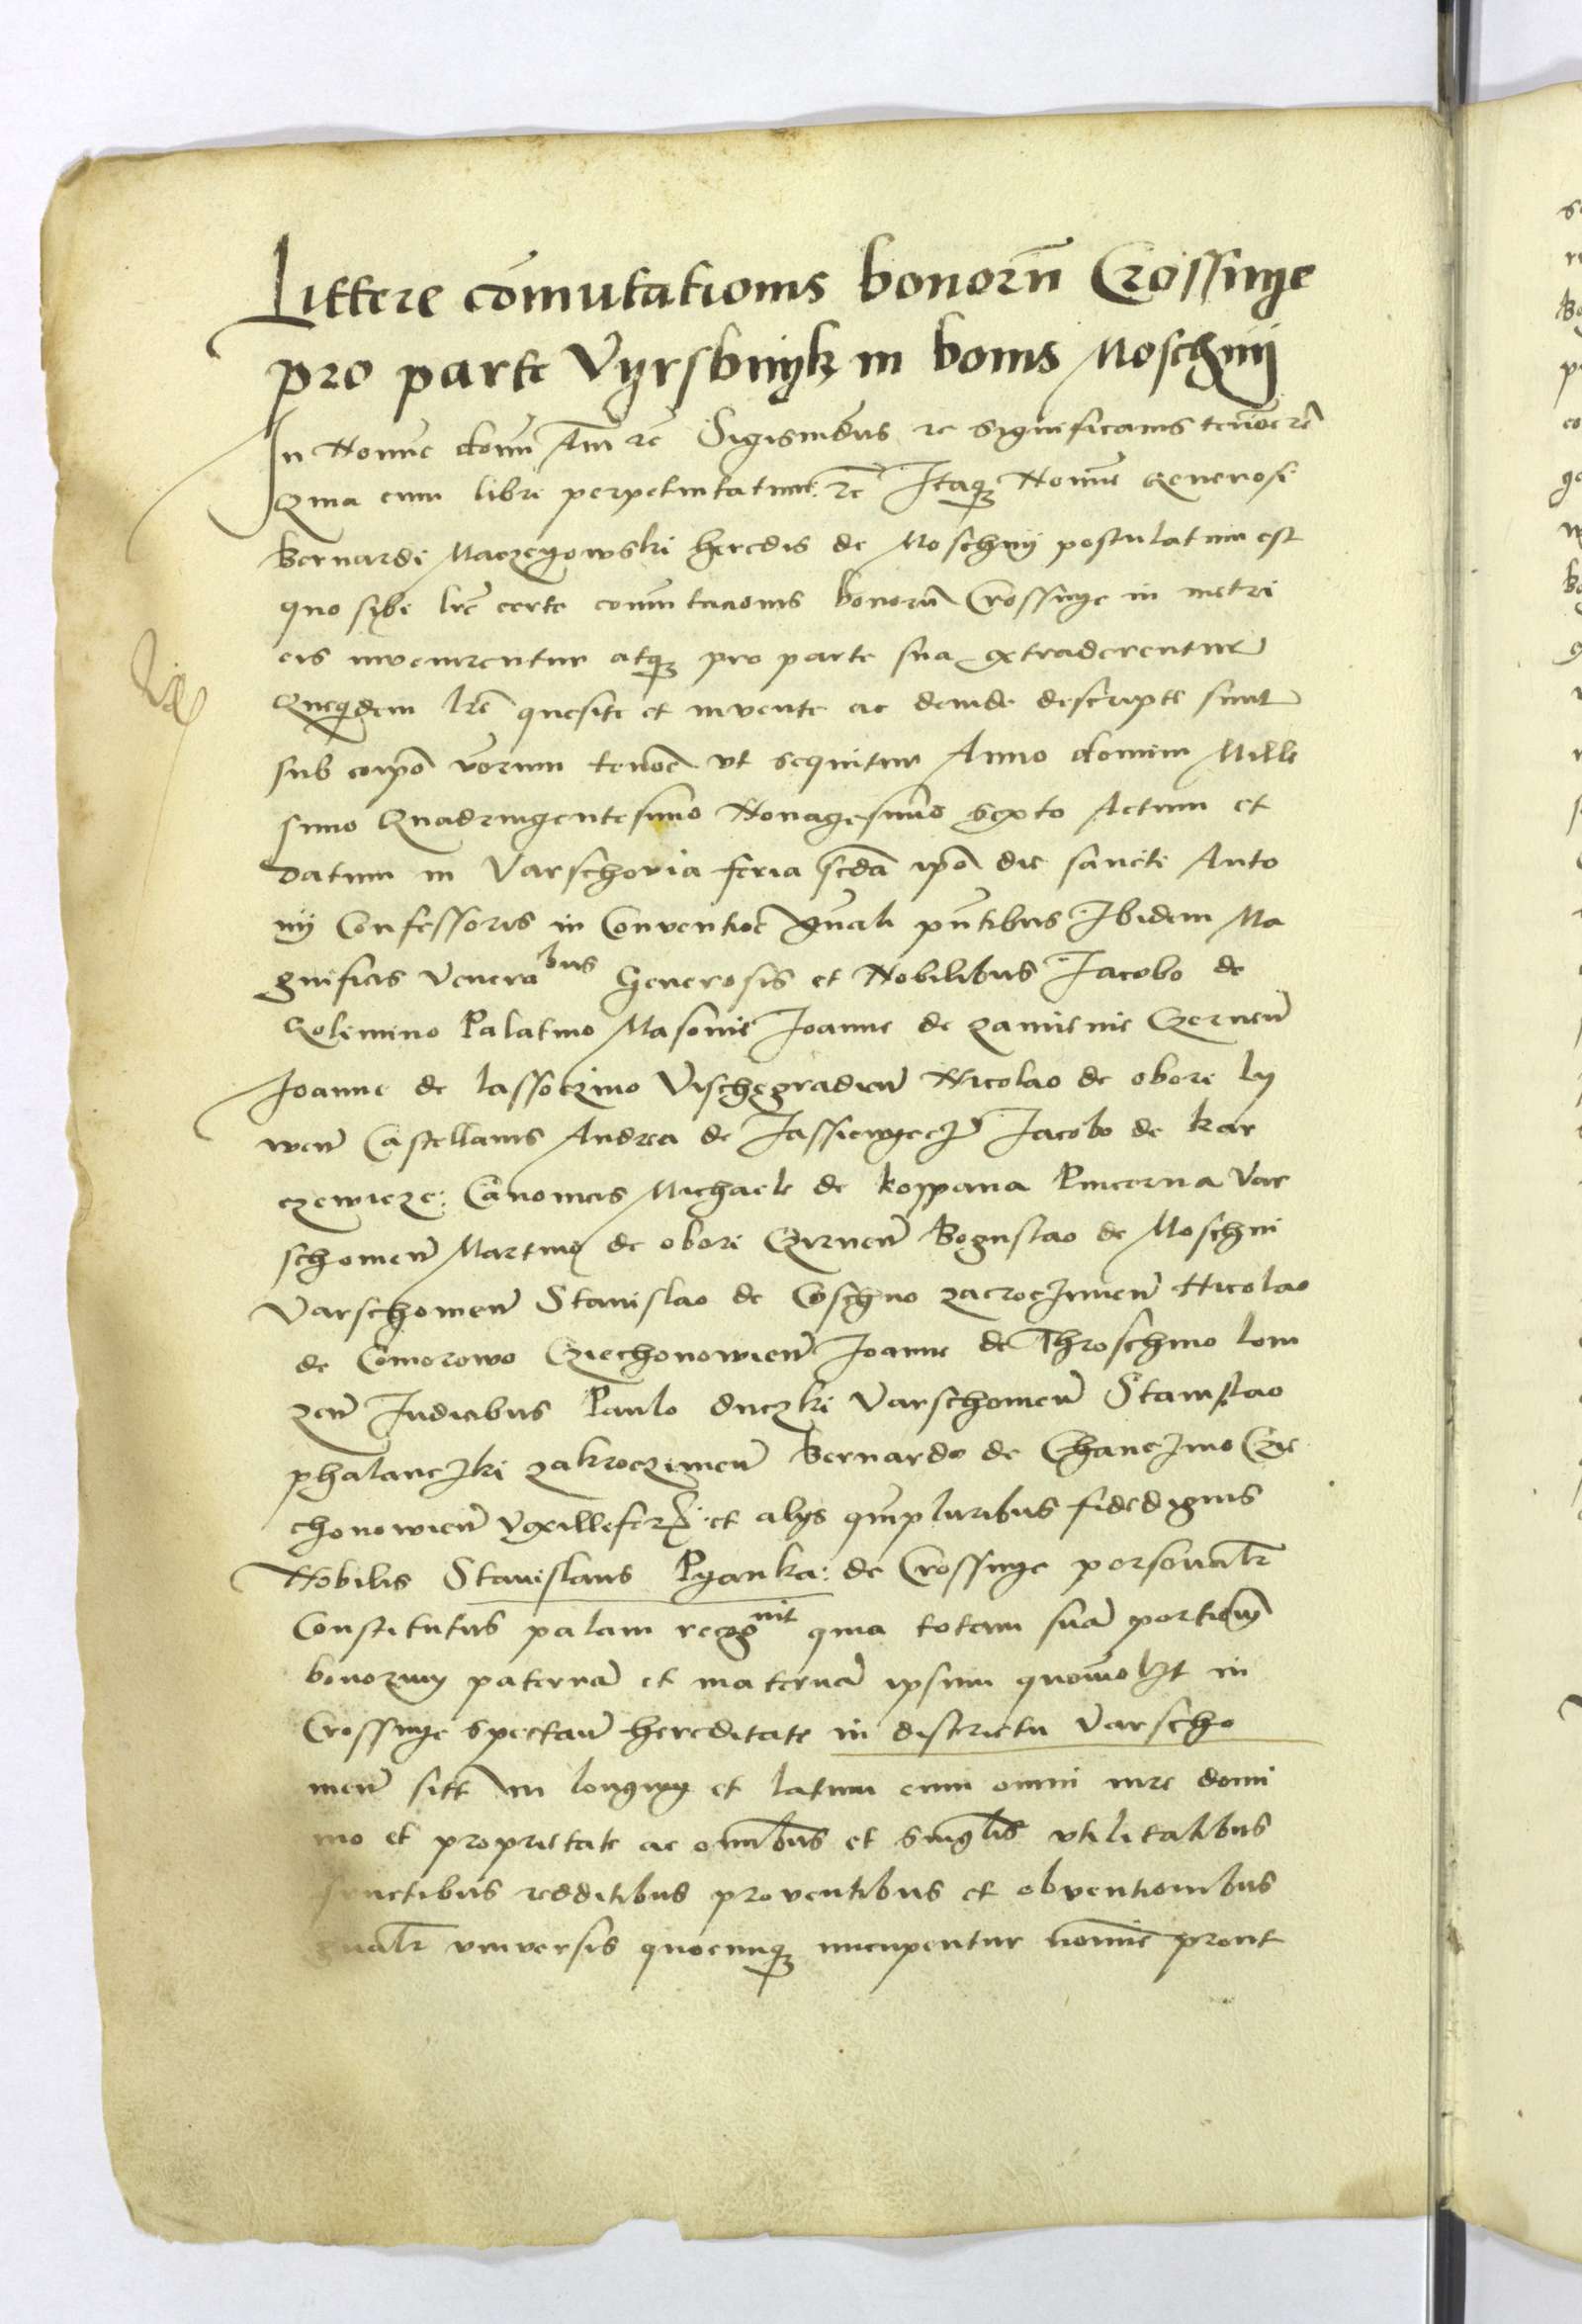 Littere comutationis bonorū Crossinye
pro parte Vyrsbnyk in bonis Moschnij
In Nomīe domī Am̄ rc̄ Sigismūdus rc significams tenore rc̄
Quia cum libri perpetuitatum: rc̄ Itaq Nomīe Generosi
Bernardi Maczeyowski heredis de Moschnij postulatum est
quo sibi lrē certe comutacionis bonorū Crossinye in metri
cis invenirentur atq pro parte sua extraderentur
Quequidem lrē quesite et invente ac deinde descripte sunt
sub eorpō verum tenorē vt sequitur Anno domini Mille
simo Quadringentesimo Nonagesimo sexto Actum et
datum in Varschovia feria scdā ipō die sancti Anto
nij Confessoris in Conventiōe gn̄ali pn̄tibus Ibidem Ma
gnificis Venerabus Generosis et Nobilibus Jacobo de
Golimino Palatino Masovie Joanne de zamienie Czernen̄
Joanne de lassoczino Vischegradien̄ Nicolao de obori ly
wen̄ Castellanis Andrea de Jassienyecz Jacobo de kar
czewicze: Canonicis Michaele de koppana Pincerna Var
schovien̄ Martino de obori Czrnen̄ Boguslao de Moschni
Varschovien̄ Stanislao de Coschno zacroczimen̄ Nicolao
de Comorowo Cziechonowien̄ Joanne de Throschino lom
zen̄ Judicibus Paulo duczki Varschovien̄ Stanislao
phalanczki zakroczimen̄ Bernardo de Chanczino Czie
chonowien̄ Vexillefer: et alys qmpluribus fidedignis
Nobilis Stanislaus Pyenka: de Crossinye personalr̄
Constitutus palam recognit quia totam suā portionē
bonorum paternā et maternā ipsum quovismo in
Crossinye spectan̄ hereditate in districtu Varscho
vien̄ sitt in longum et latum cum omni iure domi
nio et proprietate ac omībus et singlis vtilitatibus
fructibus redditibus proventibus et obventionibus
gn̄alr̄ vniversis quocumq nuncupentur nomīe prout